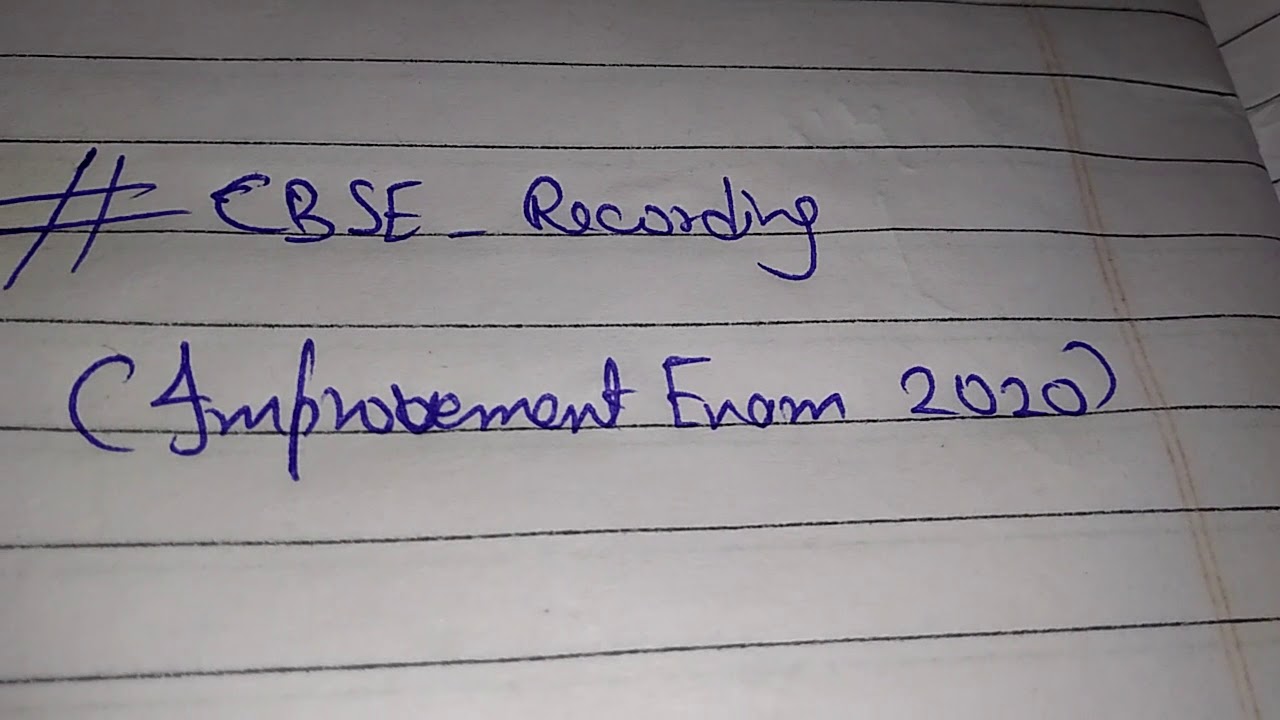 # CBSE - Recording
(Improvement Exam 2020)